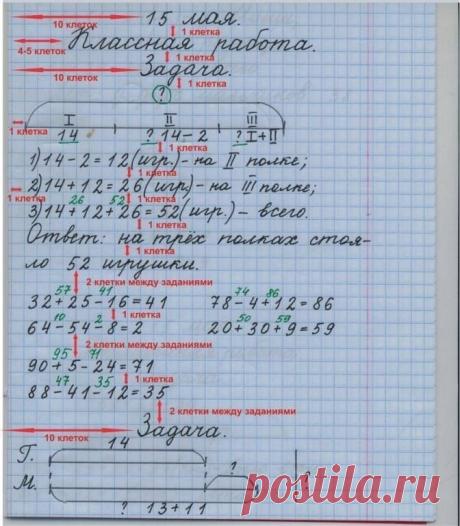 10 клеток 15 мая.
1 клетка
4-5 клеток Классная работа.
1 клетка
10 клеток Задача.
?
I II III
1 клетка 14 ? 14-2 ? I+II
1 клетка
1) 14-2=12(игр.)- на II полке;
1 клетка
2) 14+12=26(игр.)- на III полке;
1 клетка 26 52 1 клетка
3) 14+12+26=52(игр.)- всего.
1 клетка
Ответ: на трёх полках стоя-
1 клетка
ло 52 игрушки.
2 клетки между заданиями
57 41 74 86
32+25-16=41 78-4+12=86
1 клетка
10 2 50 59
64-54-8=2 20+30+9=59
2 клетки между заданиями
95 71
90+5-24=71
47 35 1 клетка
88-41-12=35
2 клетки между заданиями
10 клеток Задача.
14
Г.
?
М. ?
? 13+11
postila.ru